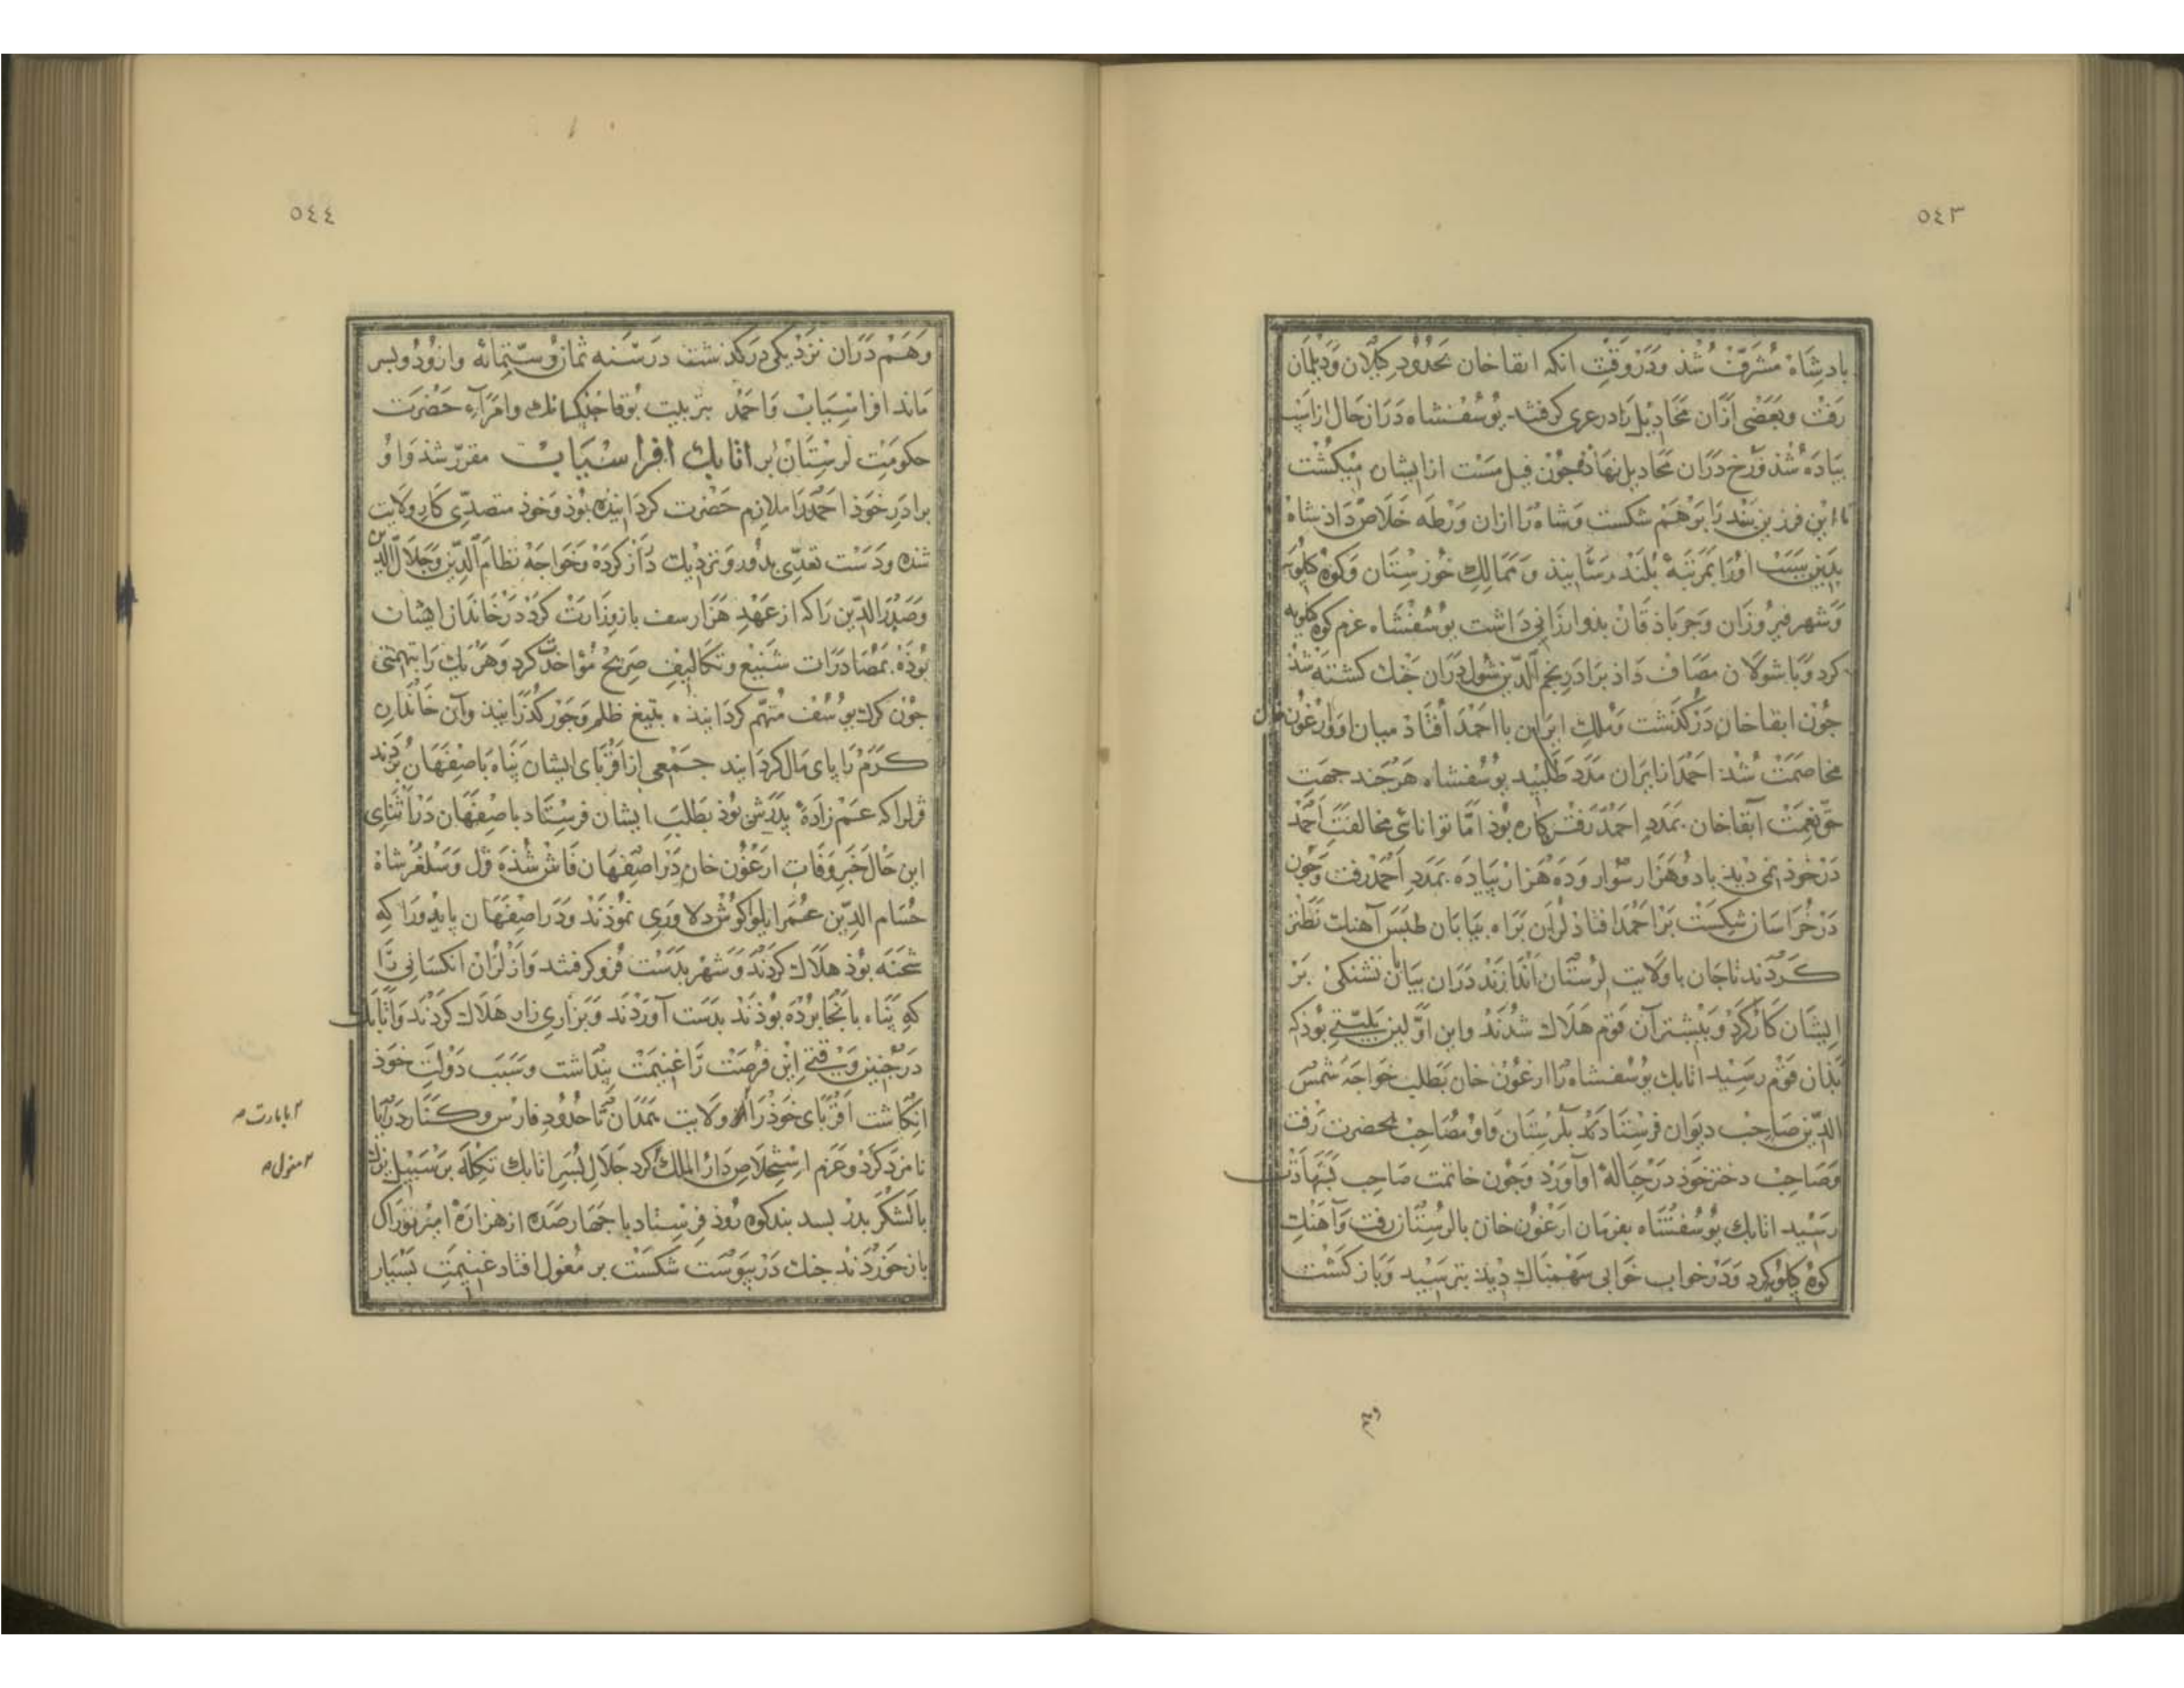 ٥٤٣
بادشاه مشرف شذ ودر وقت انکه ابقا خان بحدود کیلان ودیلمان
رفت وبعضی ازان مخادیل را در عری کرفتند یوسفشاه در ان حال از اسب
بیاده شذ ورخ دران مخادیل نهاذ جون فیل مست از ایشان میکشت
تا این فرزین بند را بر هم شکست وشاه را ازان ورطه خلاص داذ شاه
بدین سبب اورا بمرتبه بلند رسانیذ و ممالک خوزستان وکوه کیلویه
وشهر فیروزان وجرباذقان بذو ارزانی داشت یوسفشاه عزم کوه کیلویه
کرد وبا شولان مصاف داذ برادر نجم الدین شول دران جنک کشته شذ
جون ابقاخان درکذشت وملک ایران با احمد افتاذ میان او وارغون خان
مخاصمت شذ احمد اتابران مدد طلبید یوسفشاه هرجند جهت
حق نعمت آبقاخان بمدد احمد رفتن کاره بوذ اما توانائی مخالفت احمد
در خوذ نمی دیذ با دو هزار سوار وده هزار بیاده بمدد احمد رفت وجون
در خراسان شکست بر احمد افتاذ لران براه بیابان طبس آهنک نطنز
کردند تا جان با ولایت لرستان اندازند دران بیابان تشنکی بر
ایشان کار کرد وبیشتر آن قوم هلاک شدند واین اولین بلیتی بوذ که
بذان قوم رسید اتابک یوسفشاه را ارغون خان بطلب خواجه شمس
الدین صاحب دیوان فرستادند بلرستان واو مصاحب بحضرت رفت
وصاحب دختر خوذ در حباله او آورد وجون خاتمت صاحب بشهادت
رسید اتابک یوسفشاه بفرمان ارغون خان با لرستان رفت وآهنک
کوه کیلویه کرد ودر خواب خوابی سهمناک دیذ بترسید وباز کشت
٥٤٤
وهم دران نزدیکی درکذشت در سنه ثمان وستمائه وازو دو بسر
ماند افراسیاب واحمد بتربیت بوقا جنکسانک وامراء حضرت
حکومت لرستان بر اتابک افراسیاب مقرر شذ واو
برادر خوذ احمد را ملازم حضرت کردانیذه بوذ وخوذ متصدی کار ولایت
شذه ودست تعدی بدور ونزدیک دراز کرده وخواجه نظام الدین وجلال الدین
وصدر الدین را که از عهد هزارسف باز وزارت کرد در خاندان ایشان
بوذه بمصادرات شنیع وتکالیف صریح مؤاخذت کرد وهر یک را بتهمتی
جون کرک یوسف متهم کردانیذه بتیغ ظلم وجور کذرانیذ وآن خاندان
کرم را بای مال کردانید جمعی از اقربای ایشان بناه باصفهان بردند
قزل را که عم زاده بدرش بوذ بطلب ایشان فرستاد باصفهان در اثنای
این حال خبر وفات ارغون خان در اصفهان فاش شذه قزل وسلغر شاه
حسام الدین عمر ایلواکوش دلاوری نموذند ودر اصفهان بایدو را که
شحنه بوذ هلاک کردند وشهر بدست فرو کرفتند واز لران انکسانی را
که بناه بانجا برده بوذند بدست آوردند وبزاری زار هلاک کردند واتابک
در جنین وقتی این فرصت را غنیمت بنداشت وسبب دولت خوذ
انکاشت اقربای خوذ را ولایت همدان تا حدود فارس وکنار دریا
نامزد کرد وعزم استخلاص دار الملک کرد جلال بسر اتابک تکله بر سبیل یزک
با لشکر بدر بند کوه روذ فرستاد با جهار صده از هزاره امیر توراک
باز خوردند جنک در بیوست شکست بر مغول افتاد غنیمت بسیار